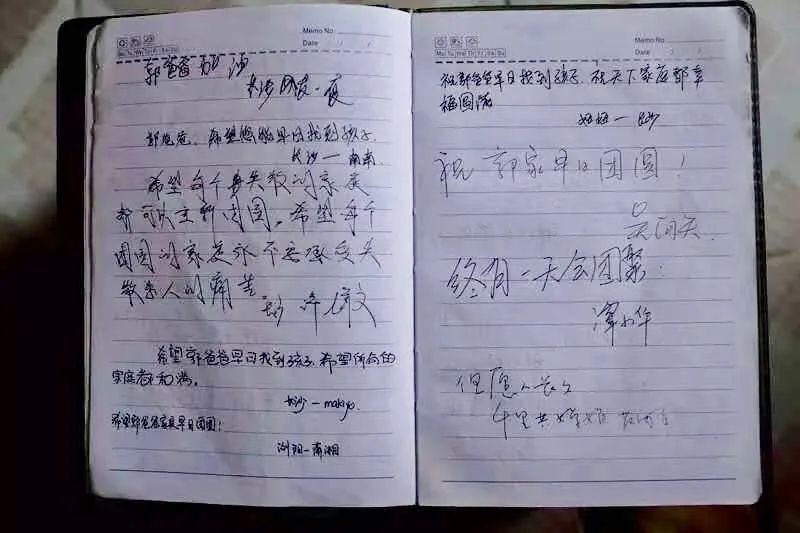 Memo No.
Date / /
Mo Tu We Th Fr Sa Su
郭爸爸加油
长沙网友·夜
郭爸爸,希望您能早日找到孩子
长沙一南南
希望每个丢失散的家庭
都可以重新团圆,希望每个
团圆的家庭永不要承受失
散亲人的痛苦。
希望郭爸爸早日找到孩子,希望所有的
家庭都和满。
长沙一makiyo.
希望郭爸爸家庭早日团圆!
浏阳一南湘
Memo No.
Date / /
Mo Tu We Th Fr Sa Su
祝郭爸爸早日找到孩子 祝天下家庭都幸
福圆满
妞妞一长沙
祝郭家早日团圆!
吴问天
终有一天会团聚.
但愿人长久
千里共婵娟